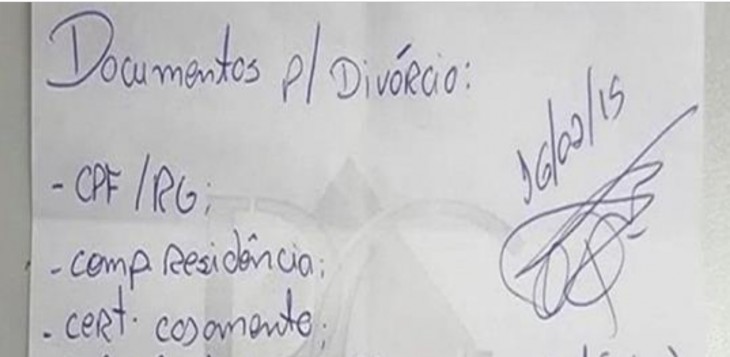 Documentos p/ Divórcio:
16/02/15
- CPF/RG;
- comp. Residência;
- cert. casamento;